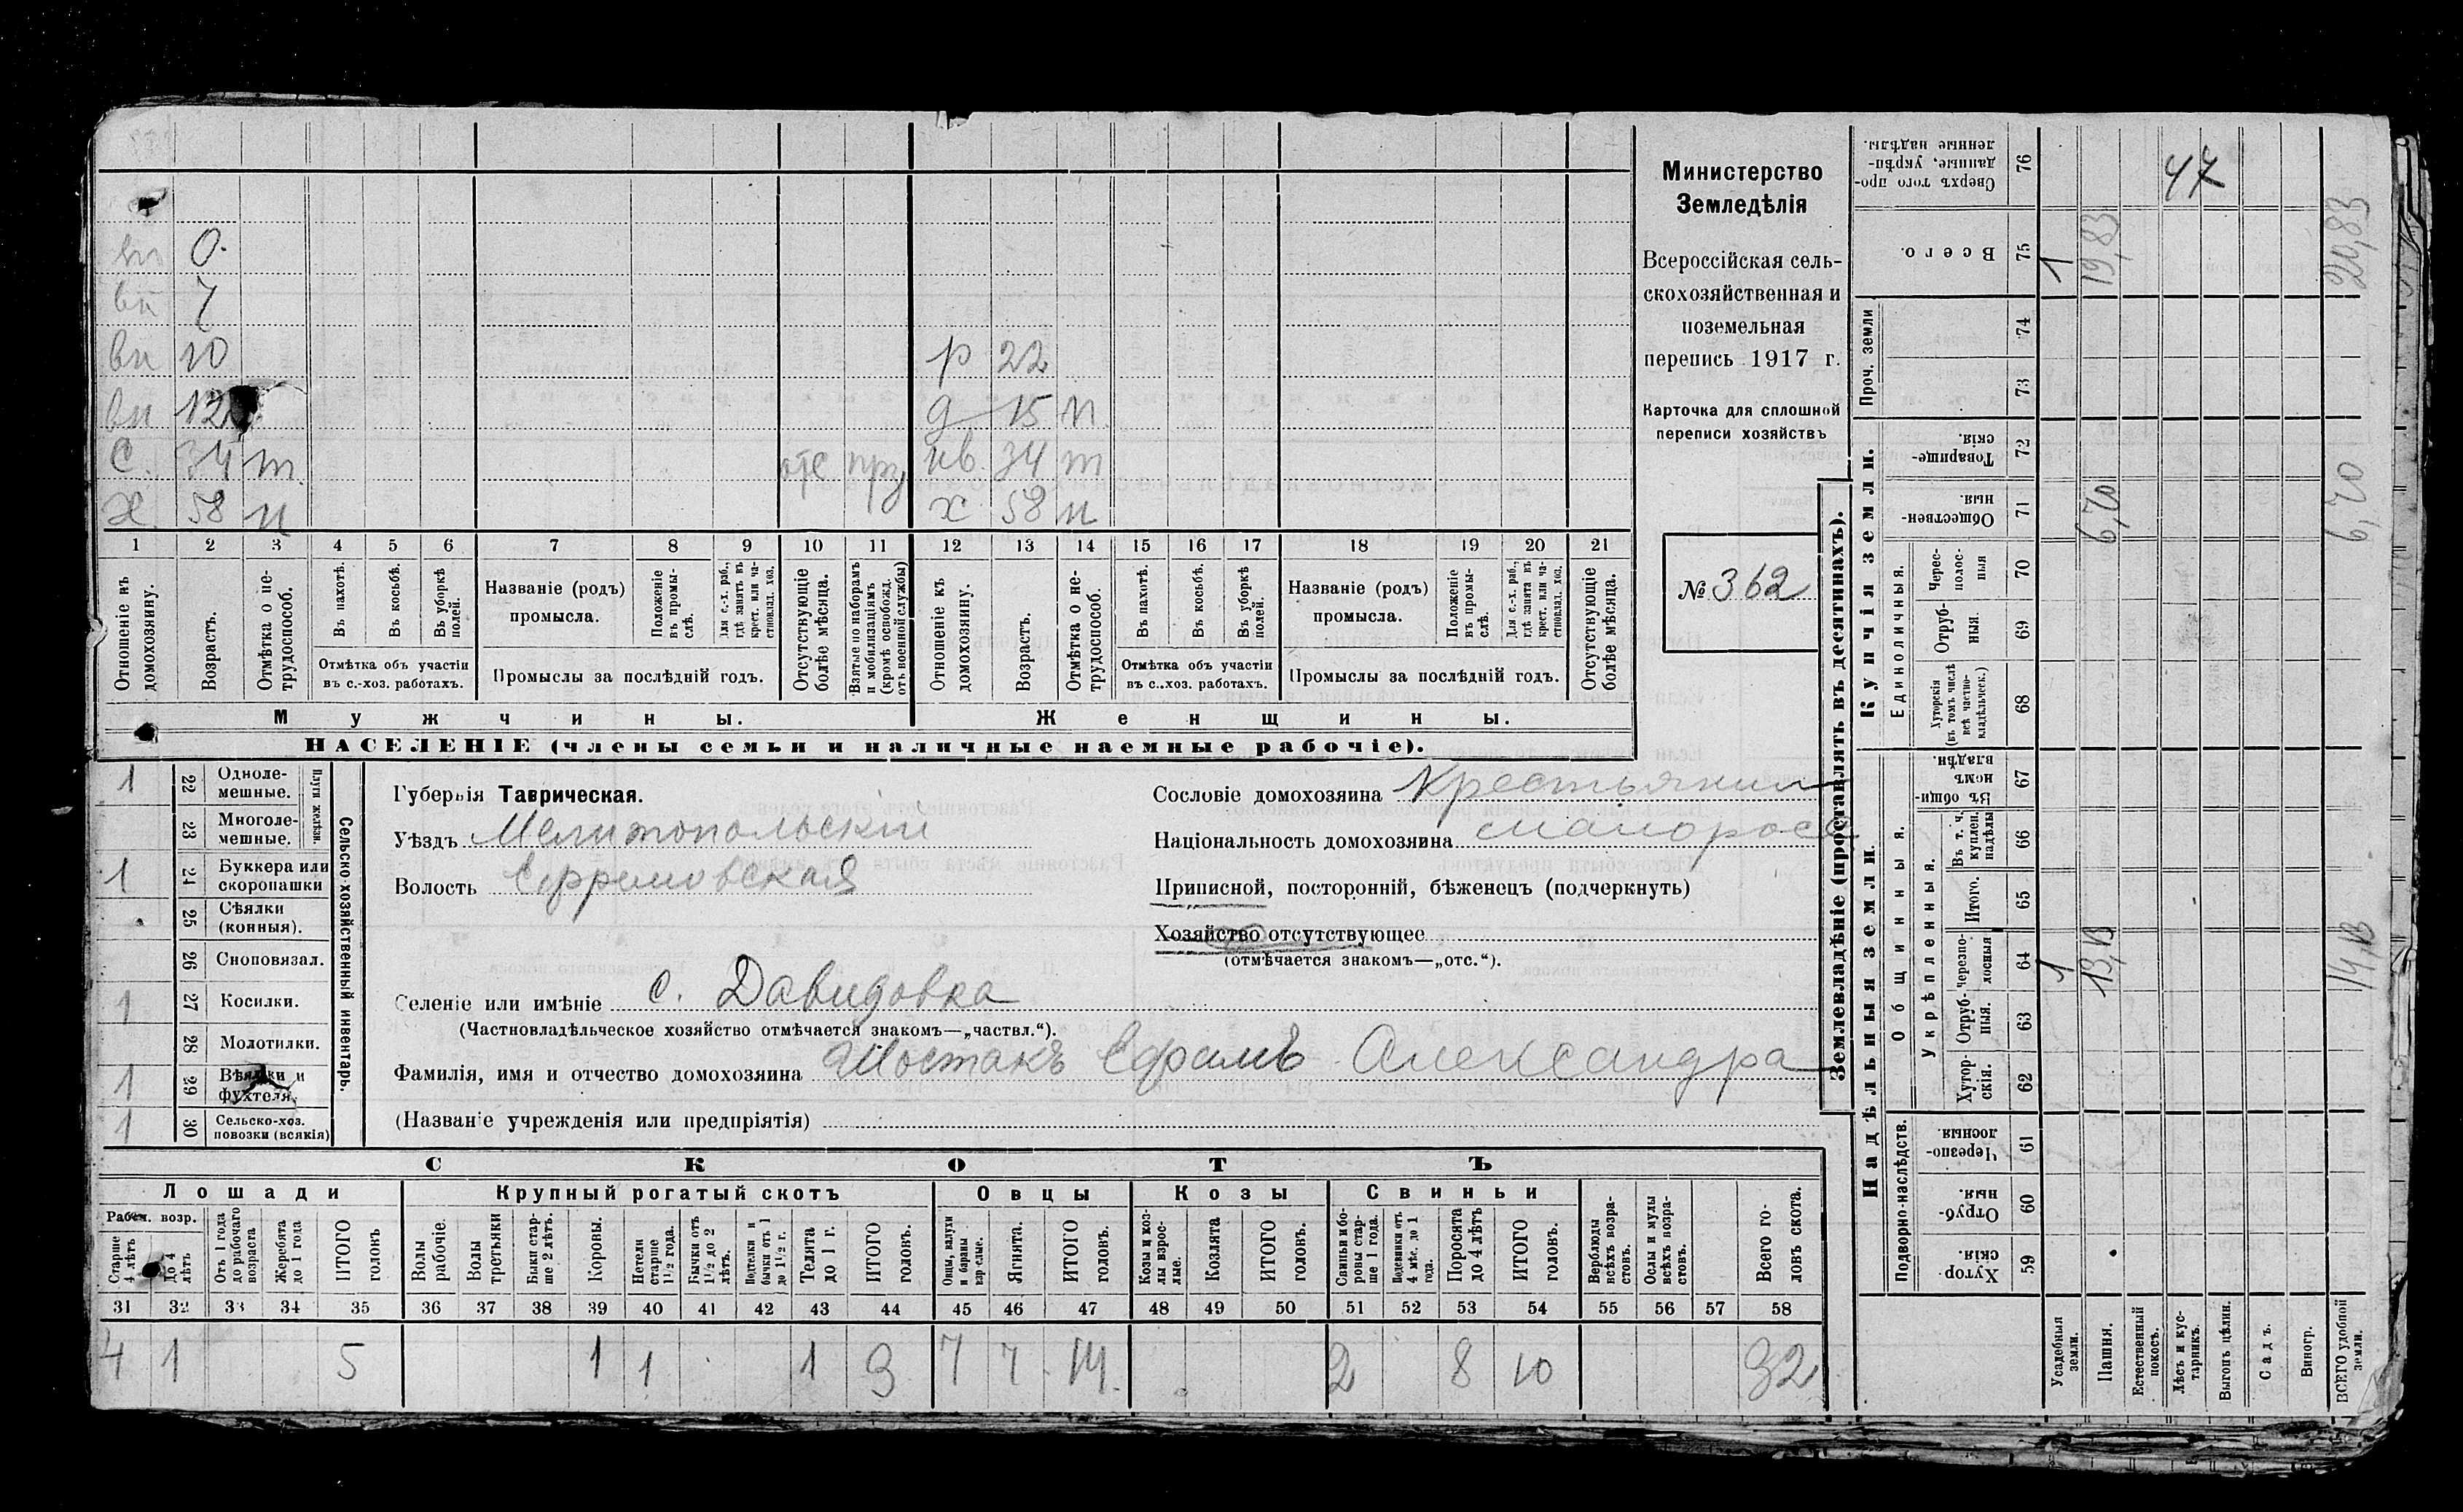 вп 0.
вп 7
вп 10
р 22
вп 12
д 15 п
с. 34 т.
отс приз
нв. 34 т
х 58 п
х 58 п
1 2 3 4 5 6 7 8 9 10 11 12 13 14 15 16 17 18 19 20 21
Отношеніе къ домохозяину.
Возрастъ.
Отмѣтка о не-трудоспособ.
Въ пахотѣ.
Въ косьбѣ.
Въ уборкѣ полей.
Отмѣтка объ участіи въ с.-хоз. работахъ.
Названіе (родъ) промысла.
Положеніе въ промы-слѣ.
Для с.-х. раб., гдѣ занятъ въ крест. или ча-стновлад. хоз.
Промыслы за послѣдній годъ.
Отсутствующіе болѣе мѣсяца.
Взятые по наборамъ и мобилизаціямъ (кромѣ освобожд. отъ военной службы)
Отношеніе къ домохозяину.
Возрастъ.
Отмѣтка о не-трудоспособ.
Въ пахотѣ.
Въ косьбѣ.
Въ уборкѣ полей.
Отмѣтка объ участіи въ с..хоз. работахъ.
Названіе (родъ) промысла.
Положеніе въ промы-слѣ.
Для с.-х. раб., гдѣ занята въ крест. или ча-стновлад. хоз.
Промыслы за послѣдній годъ.
Отсутствующіе болѣе мѣсяца.
Мужчины.
Женщины.
НАСЕЛЕНІЕ (члены семьи и наличные наемные рабочіе).
Министерство
Земледѣлія
Всероссійская сель-
скохозяйственная и
поземельная
перепись 1917 г.
Карточка для сплошной
переписи хозяйствъ
№ 362
Сельско-хозяйственный инвентарь.
Плуги желѣзн.
1 22 Одноле-мешные.
23 Многоле-мешные.
1 24 Буккера или скоропашки
25 Сѣялки (конныя).
26 Сноповязал.
1 27 Косилки.
28 Молотилки.
1 29 Вѣялки и фухтеля.
1 30 Сельско-хоз. повозки (всякія)
Губернія Таврическая.
Уѣздъ Мелитопольскій
Волость Ефремовская
Сословіе домохозяина Крестьянин
Національность домохозяина малоросс
Приписной, посторонній, бѣженецъ (подчеркнуть)
Хозяйство отсутствующее
(отмѣчается знакомъ—„отс.“).
Селеніе или имѣніе с. Давидовка
(Частновладѣльческое хозяйство отмѣчается знакомъ—„частвл.“).
Фамилія, имя и отчество домохозяина Шостакъ Ефимъ Александра
(Названіе учрежденія или предпріятія)
СКОТЪ
Лошади
Крупный рогатый скотъ
Овцы
Козы
Свиньи
Рабоч. возр.
Старше 4 лѣтъ
До 4 лѣтъ
Отъ 1 года до рабочаго возраста
Жеребята до 1 года
ИТОГО головъ
Волы рабочіе.
Волы третьяки
Быки стар-ше 2 лѣтъ.
Коровы.
Нетели старше 1 1/2 года.
Бычки отъ 1 1/2 до 2 лѣтъ.
Подтелки и бычки отъ 1 до 1 1/2 г.
Телята до 1 г.
ИТОГО головъ.
Овцы, валухи и бараны взрослые.
Ягнята.
ИТОГО головъ.
Козы и коз-лы взрос-лые.
Козлята
ИТОГО головъ.
Свиньи и бо-ровы стар-ше 1 года.
Подсвинки отъ 4 мѣс. до 1 года.
Поросята до 4 лѣтъ
ИТОГО головъ.
Верблюды всѣхъ возра-стовъ.
Ослы и мулы всѣхъ возра-стовъ.
Всего го-ловъ скота.
31 32 33 34 35 36 37 38 39 40 41 42 43 44 45 46 47 48 49 50 51 52 53 54 55 56 57 58
4 1 5 1 1 1 3 7 7 14 2 8 10 32
Землевладѣніе (проставлять въ десятинахъ).
Надѣльныя земли.
Купчія земли.
Проч. земли
Подворно-наслѣдств.
Общинныя.
Укрѣпленныя.
Единоличныя.
Хутор-скія. 59
Отруб-ныя 60
Черезпо-лосныя. 61
Хутор-скія. 62
Отруб-ныя. 63
черезпо-лосныя 64
Итого. 65
Въ т. ч. куплен. надѣлы 66
Въ общин-номъ владѣн. 67
Хуторскія (въ томъ числѣ всѣ частно-владѣльческ.) 68
Отруб-ныя 69
Черес-полос-ныя 70
Обществен-ныя. 71
Товарище-скія. 72
73
74
Всего. 75
Сверхъ того про-данные, укрѣп-ленные надѣлы. 76
Усадебныя земли.
Пашня.
Естественный покосъ.
Лѣсъ и кус-тарникъ.
Выгонъ цѣлин.
Садъ.
Виногр.
ВСЕГО удобной земли.
1 13,13 14,13
6,70 6,70
1 19,83 20,83
47